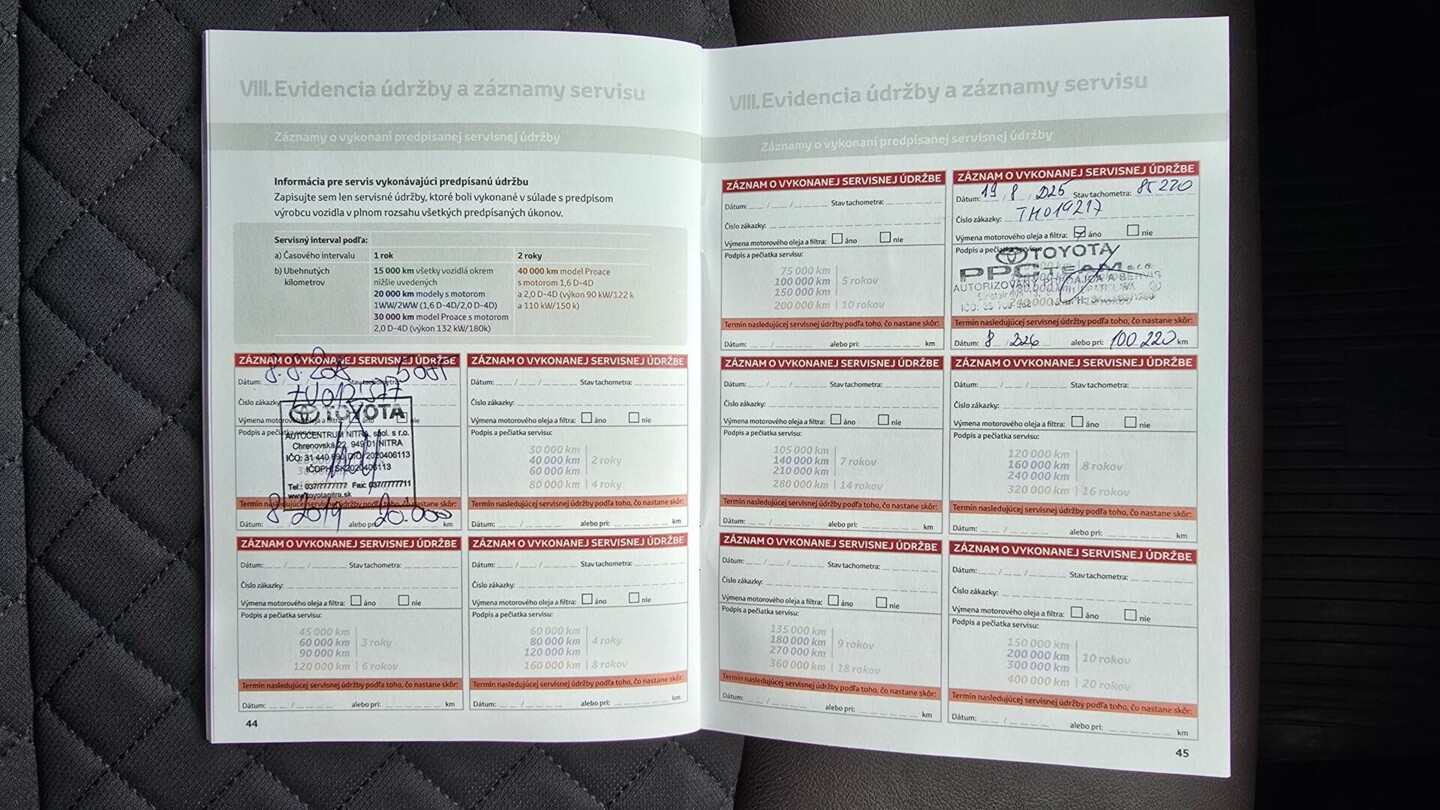 VIII. Evidencia údržby a záznamy servisu
Záznamy o vykonaní predpísanej servisnej údržby
Informácia pre servis vykonávajúci predpísanú údržbu
Zapisujte sem len servisné údržby, ktoré boli vykonané v súlade s predpisom
výrobcu vozidla v plnom rozsahu všetkých predpísaných úkonov.
Servisný interval podľa:
a) Časového intervalu 1 rok 2 roky
b) Ubehnutých kilometrov 15 000 km všetky vozidlá okrem nižšie uvedených 40 000 km model Proace s motorom 1,6 D-4D
20 000 km modely s motorom 1WW/2WW (1,6 D-4D/2,0 D-4D) a 2,0 D-4D (výkon 90 kW/122 k a 110 kW/150 k)
30 000 km model Proace s motorom 2,0 D-4D (výkon 132 kW/180k)
ZÁZNAM O VYKONANEJ SERVISNEJ ÚDRŽBE
Dátum: Stav tachometra:
Číslo zákazky:
Výmena motorového oleja a filtra: áno
Podpis a pečiatka servisu:
TOYOTA
AUTOCENTRUM NITRA, spol. s r.o.
Chrenovská 22, 949 01 NITRA
IČO: 31 440
Tel.: 037/7777777 Fax: 037/7777711
www.toyotanitra.sk
Termín nasledujúcej servisnej údržby podľa toho, čo nastane skôr:
Dátum: 8 2019 alebo pri: 20.000 km
ZÁZNAM O VYKONANEJ SERVISNEJ ÚDRŽBE
Dátum: Stav tachometra:
Číslo zákazky:
Výmena motorového oleja a filtra: áno nie
Podpis a pečiatka servisu:
30 000 km
40 000 km 2 roky
60 000 km
80 000 km 4 roky
Termín nasledujúcej servisnej údržby podľa toho, čo nastane skôr:
Dátum: alebo pri: km
ZÁZNAM O VYKONANEJ SERVISNEJ ÚDRŽBE
Dátum: Stav tachometra:
Číslo zákazky:
Výmena motorového oleja a filtra: áno nie
Podpis a pečiatka servisu:
45 000 km
60 000 km 3 roky
90 000 km
120 000 km 6 rokov
Termín nasledujúcej servisnej údržby podľa toho, čo nastane skôr:
Dátum: alebo pri: km
ZÁZNAM O VYKONANEJ SERVISNEJ ÚDRŽBE
Dátum: Stav tachometra:
Číslo zákazky:
Výmena motorového oleja a filtra: áno nie
Podpis a pečiatka servisu:
60 000 km
80 000 km 4 roky
120 000 km
160 000 km 8 rokov
Termín nasledujúcej servisnej údržby podľa toho, čo nastane skôr:
Dátum: alebo pri: km
44
VIII. Evidencia údržby a záznamy servisu
Záznamy o vykonaní predpísanej servisnej údržby
ZÁZNAM O VYKONANEJ SERVISNEJ ÚDRŽBE
Dátum: Stav tachometra:
Číslo zákazky:
Výmena motorového oleja a filtra: áno nie
Podpis a pečiatka servisu:
75 000 km
100 000 km 5 rokov
150 000 km
200 000 km 10 rokov
Termín nasledujúcej servisnej údržby podľa toho, čo nastane skôr:
Dátum: alebo pri: km
ZÁZNAM O VYKONANEJ SERVISNEJ ÚDRŽBE
Dátum: 19 / 8 / 2025 Stav tachometra: 85 220
Číslo zákazky: TH019217
Výmena motorového oleja a filtra: áno nie
Podpis a pečiatka servisu:
TOYOTA
PPC TEAM s.r.o.
AUTORIZOVANÝ PREDAJCA A SERVIS
Termín nasledujúcej servisnej údržby podľa toho, čo nastane skôr:
Dátum: 8 / 2026 alebo pri: 100.220 km
ZÁZNAM O VYKONANEJ SERVISNEJ ÚDRŽBE
Dátum: Stav tachometra:
Číslo zákazky:
Výmena motorového oleja a filtra: áno nie
Podpis a pečiatka servisu:
105 000 km
140 000 km 7 rokov
210 000 km
280 000 km 14 rokov
Termín nasledujúcej servisnej údržby podľa toho, čo nastane skôr:
Dátum: alebo pri: km
ZÁZNAM O VYKONANEJ SERVISNEJ ÚDRŽBE
Dátum: Stav tachometra:
Číslo zákazky:
Výmena motorového oleja a filtra: áno nie
Podpis a pečiatka servisu:
120 000 km
160 000 km 8 rokov
240 000 km
320 000 km 16 rokov
Termín nasledujúcej servisnej údržby podľa toho, čo nastane skôr:
Dátum: alebo pri: km
ZÁZNAM O VYKONANEJ SERVISNEJ ÚDRŽBE
Dátum: Stav tachometra:
Číslo zákazky:
Výmena motorového oleja a filtra: áno nie
Podpis a pečiatka servisu:
135 000 km
180 000 km 9 rokov
270 000 km
360 000 km 18 rokov
Termín nasledujúcej servisnej údržby podľa toho, čo nastane skôr:
Dátum: alebo pri: km
ZÁZNAM O VYKONANEJ SERVISNEJ ÚDRŽBE
Dátum: Stav tachometra:
Číslo zákazky:
Výmena motorového oleja a filtra: áno nie
Podpis a pečiatka servisu:
150 000 km
200 000 km 10 rokov
300 000 km
400 000 km 20 rokov
Termín nasledujúcej servisnej údržby podľa toho, čo nastane skôr:
Dátum: alebo pri: km
45